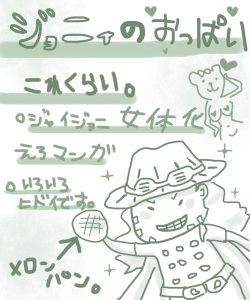 ジョニィのおっぱい
これくらい。
○ジャイジョニ 女体化
えろマンガ
○いろいろ
ヒドイです。
メロン
パン。